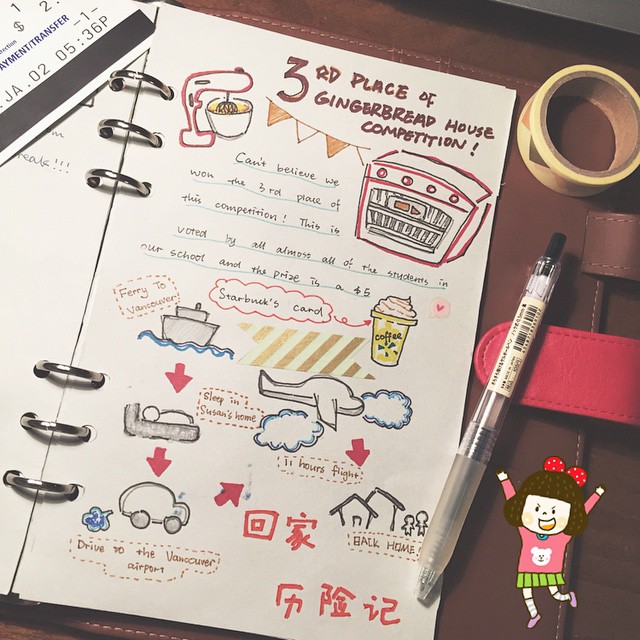 1
$ 2.
PAYMENT/TRANSFER -1-
JA.02 05:36P
eak!!!
3RD PLACE OF
GINGERBREAD HOUSE
COMPETITION!
Can't believe we
won the 3rd place of
this competition! This is
voted by all almost all of the students in
our school and the prize is a $5
Starbuck's card
coffee
Ferry To
Vancouver
Sleep in
Susan's home
11 hours flight
Drive to the Vancouver
airport
回家
BACK HOME
历险记